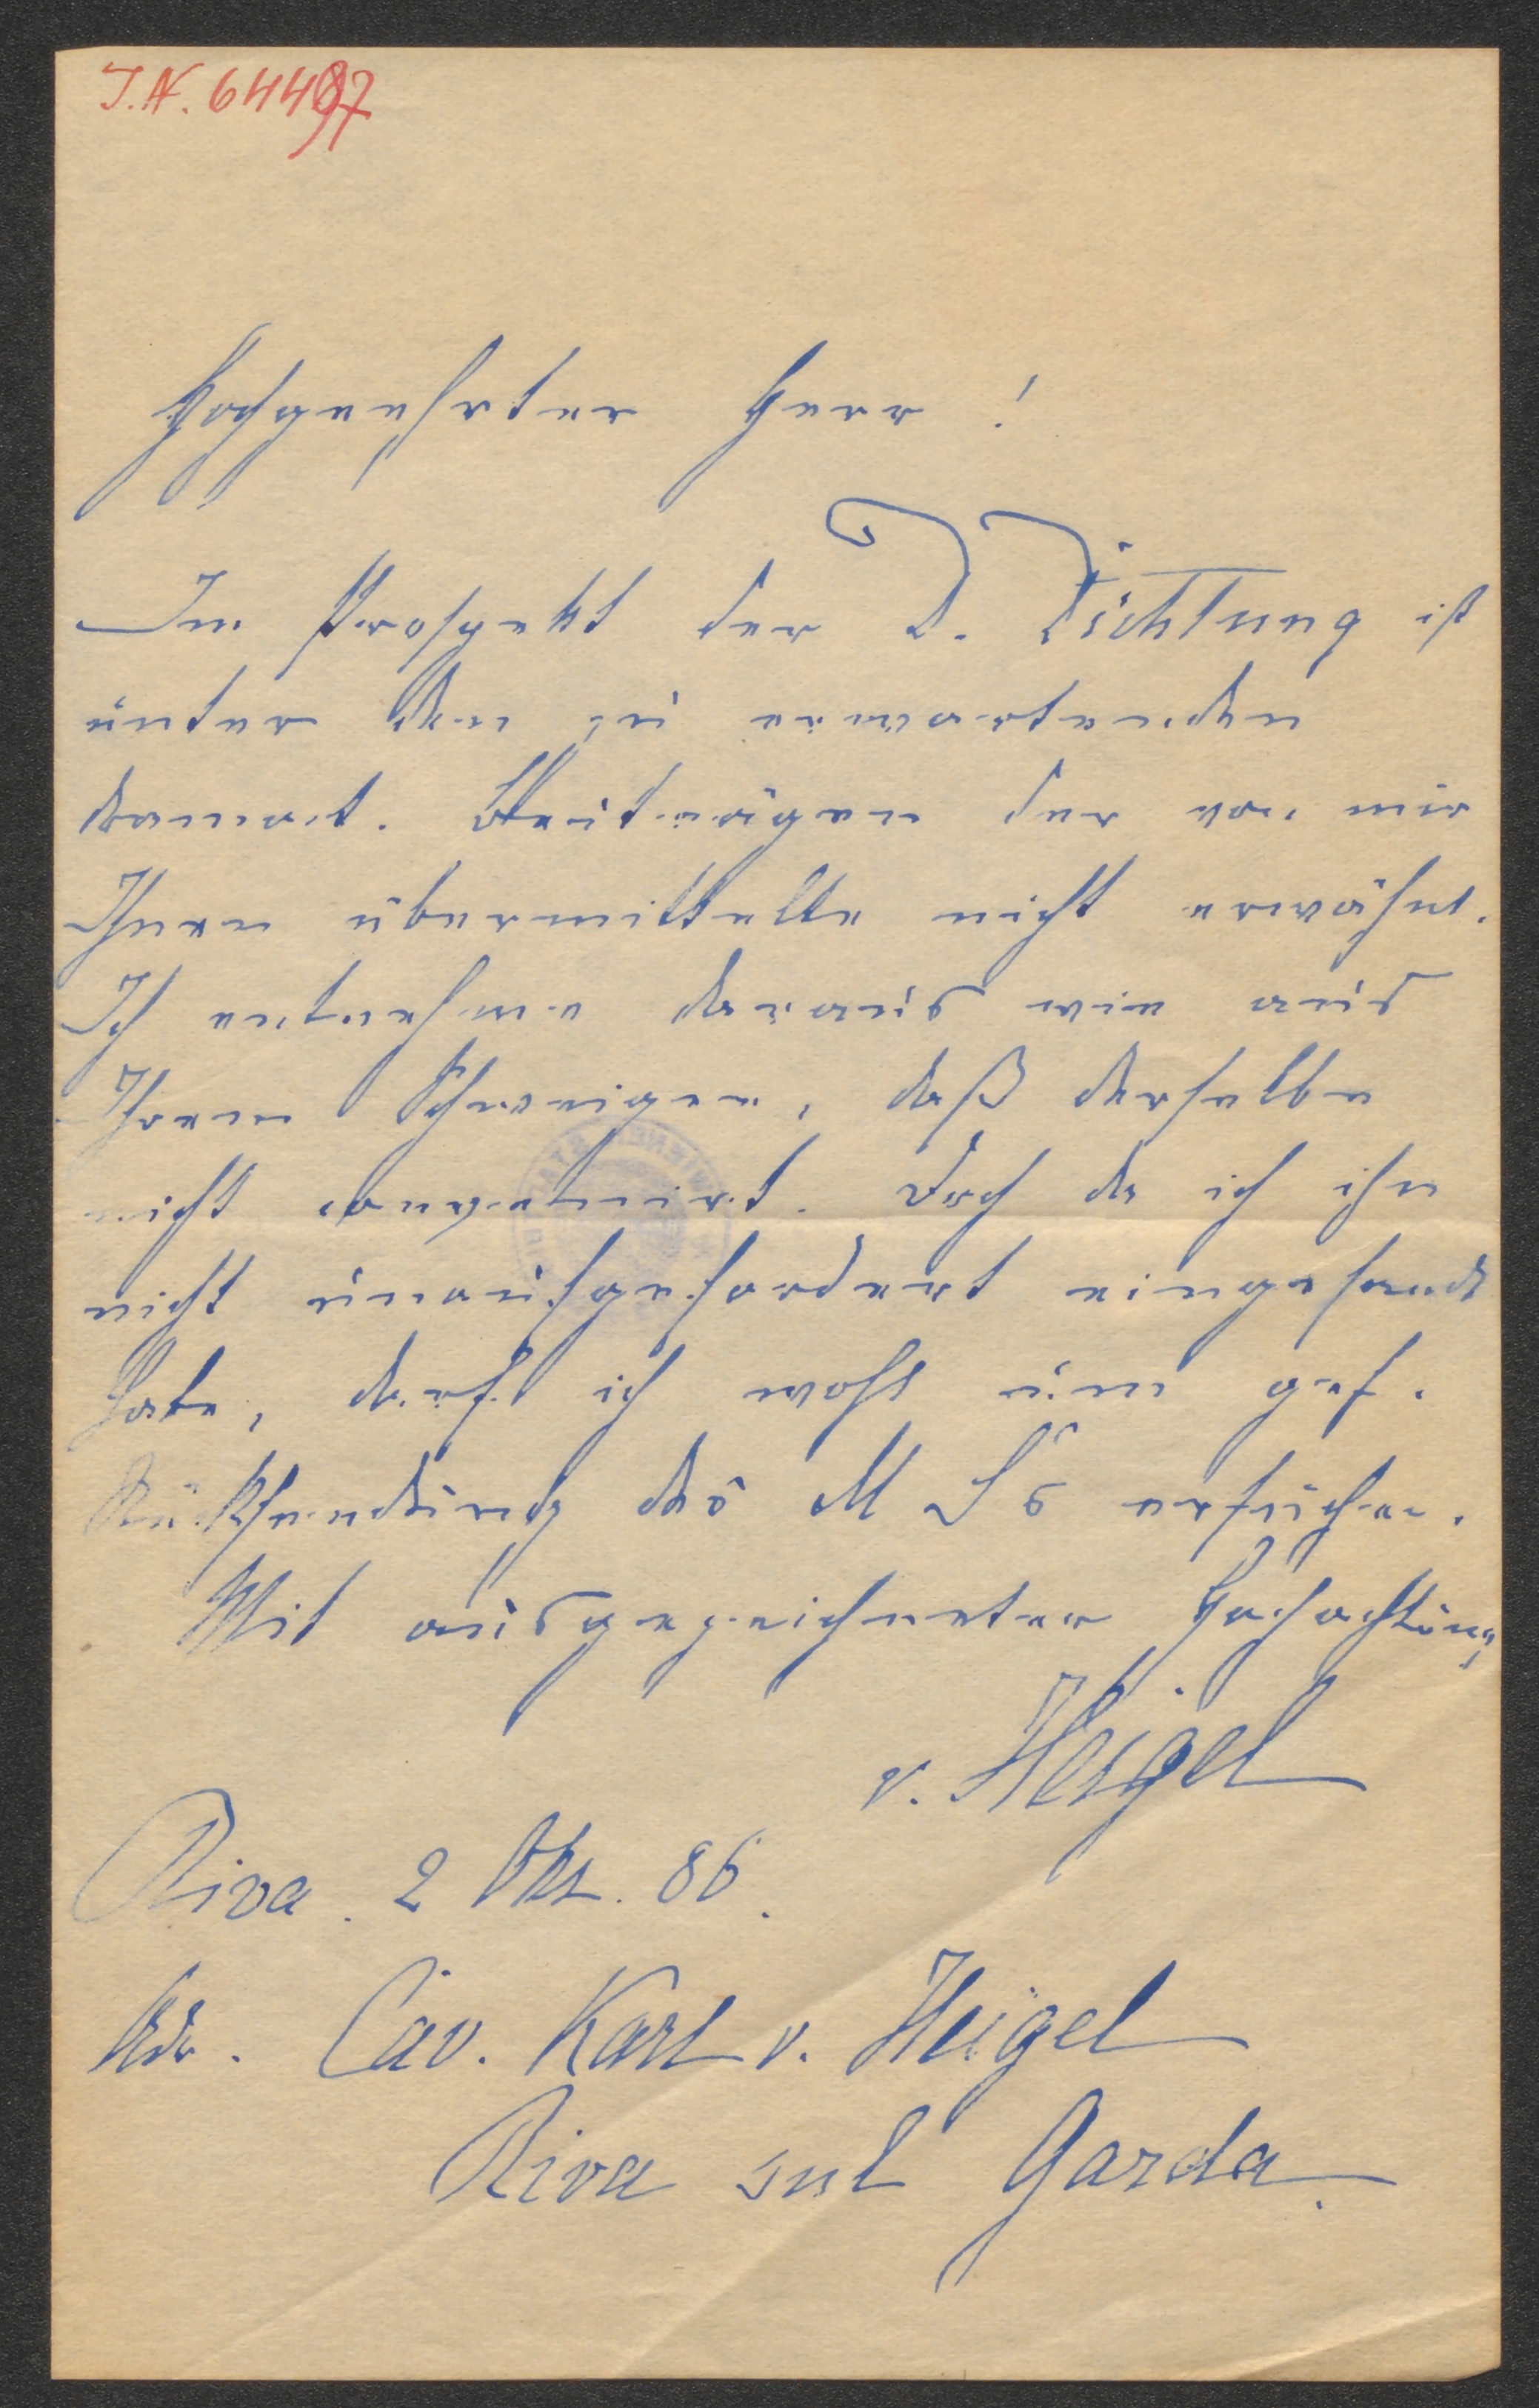 J.N. 64497
Hochgeehrter Herr!
Im Prospekt der D. Dichtung ist
unter den zu erwartenden
dramat. Beiträgen der von mir
Ihnen übermittelte nicht erwähnt.
Ich entnehme daraus wie aus
Ihrem Schweigen, daß derselbe
nicht convenirt. Doch da ich ihn
nicht unaufgefordert eingesandt
habe, darf ich wohl um gef.
Rücksendung des MSs ersuchen.
Mit ausgezeichneter Hochachtung
v. Heigel
Riva. 2 Okt. 86.
Adr. Cav. Karl v. Heigel
Riva sul Garda.